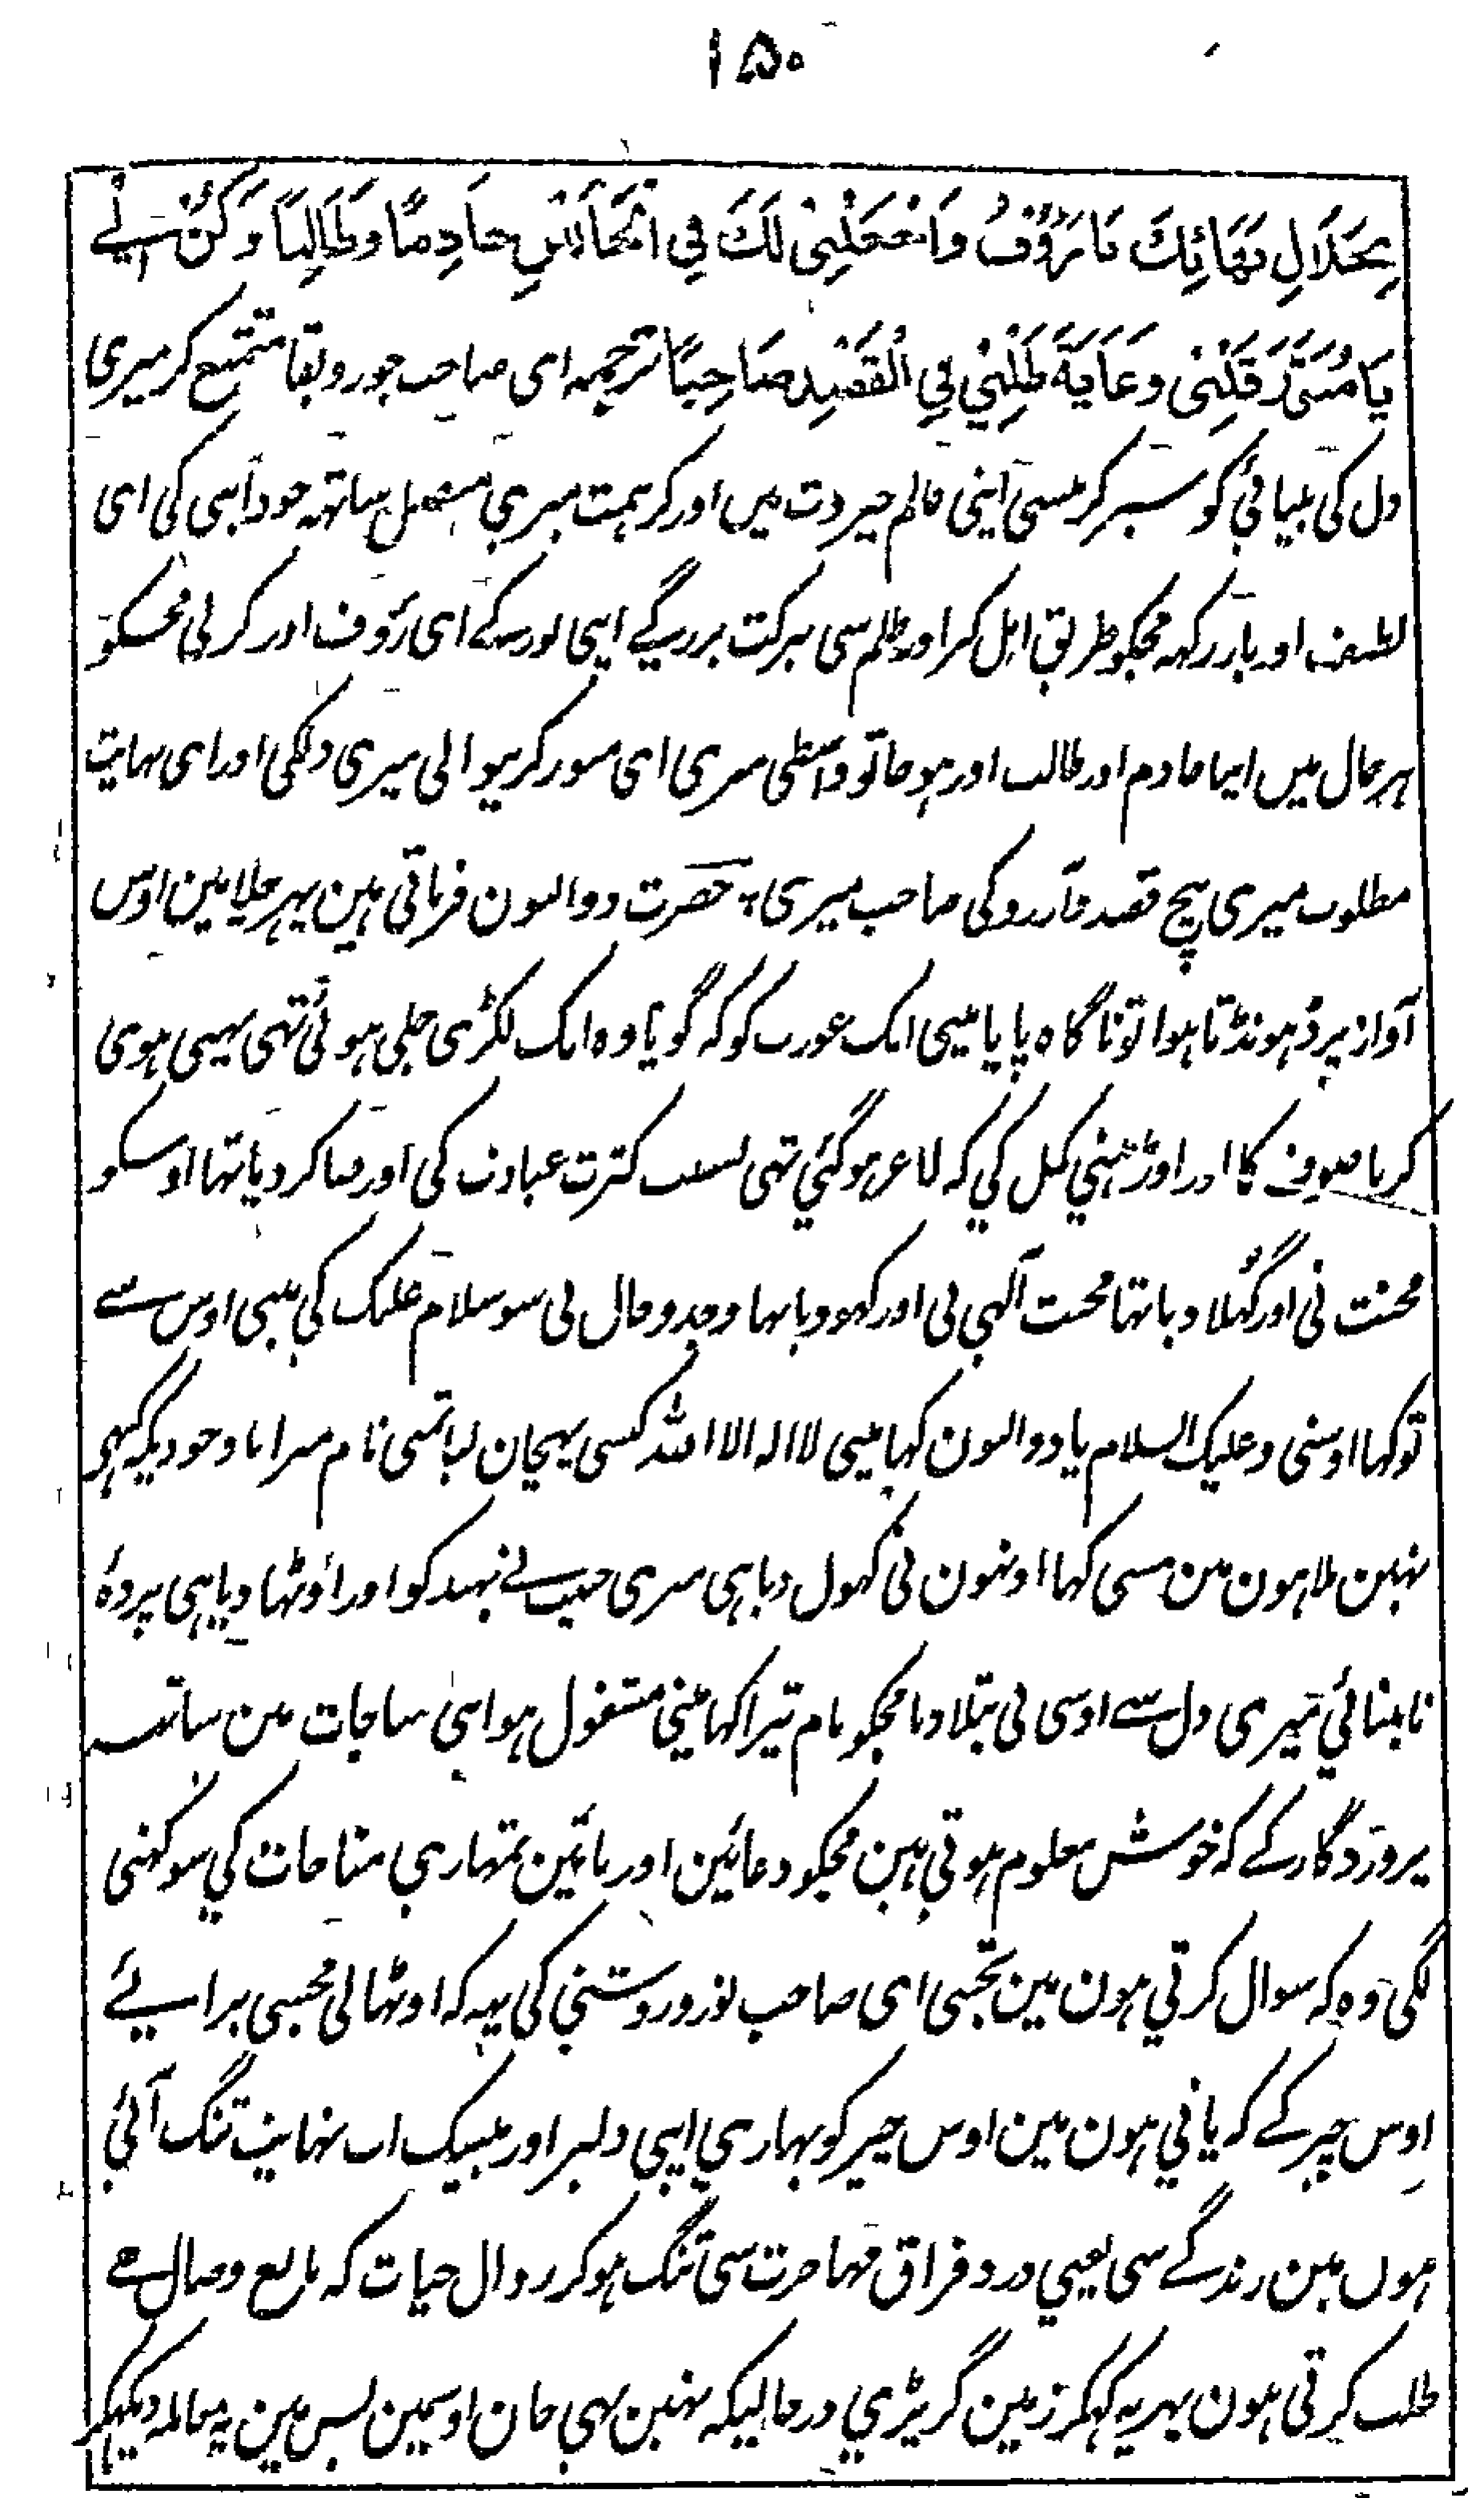 ۱۵۰
بِجَلَالِ بَهَائِكَ يَا رَؤُوفُ وَاجْعَلْنِي لَكَ فِي الْحَالَاتِ خَادِمًا وَطَالِبًا وَكُنْ لِي
يَا مُنَوِّرَ قَلْبِي وَغَايَةَ طَلَبِي فِي الْقَصْدِ صَاحِبًا ترجمہ ای صاحب جود و بقا متمتع کر میری
دل کی بینائی کو سیر کرنیسی اپنی عالم جبروت میں اور کر ہمت میری متصل ساتھہ جود اپنی کی ای
لطیف اور باز رکھہ مجکو طریق اہل کبر اور ظلم سی ببرکت بزرگی اپنی نور کے ای رؤف اور کرلی مجکو
ہر حال میں اپنا خادم اور طالب اور ہوجا تو واسطی میری ای منور کرنیوالی میری دلکی اور ای نہایت
مطلوب میری بیچ قصد کی صاحب میری حضرت ذوالنون فرماتی ہین پہر چلا مین اوس
آواز پر ڈہونڈتا ہوا تو ناگاہ پایا مینی ایک عورت کو کہ گویا وہ ایک لکڑی جلی ہوئی تہی پہنی ہوی
کرتا صوف کا اور اوڑہنی کمل کی کہ لاغر ہوگئی تہی بسبب کثرت عبادت کی اور فنا کر دیا تہا اوسکو
محنت نی اور گہلا دیا تہا محبت آلہی نی اور کہو دیا تہا وجد و حال نی سو سلام علیک کی مینی اوس سے
تو کہا اوسنی وعلیک السلام یا ذوالنون کہا مینی لا الہ الا اللہ کسی پہچان لیا تمنی نام میرا باوجودیکہ کبہو
نہین ملا ہون مین تمسی کہا اونہون نی کہول دیا ہی میری حبیب نے بہید کو اور اوٹہا دیا ہی پردۂ
نابینائی میری دل سے اوسی نی بتلا دیا مجکو نام تیرا کہا مینی مشغول ہو اپنی مناجات مین ساتہہ
پروردگار کے کہ خوش معلوم ہوتی ہین مجکو دعائین اور باتین تمہاری مناجات کی سو کہنی
لگی وہ کہ سوال کرتی ہون مین تجہی ای صاحب نور و روشنی کی یہہ کہ اوٹہالی مجہسی برائے
اوس چیز کے کہ پاتی ہون مین اوس چیز کو بہاری اپنی دلپر اور بیشک اب نہایت تنگ آئی
ہوں مین زندگے سی یعنی درد فراق مہاجرت سی تنگ ہوکر زوال حیات کہ مانع وصال ہے
طلب کرتی ہون پہر یہ کہکر زمین گر پڑی درحالیکہ نہین تہی جان اوسمین بس مین یہ معاملہ دیکہکر